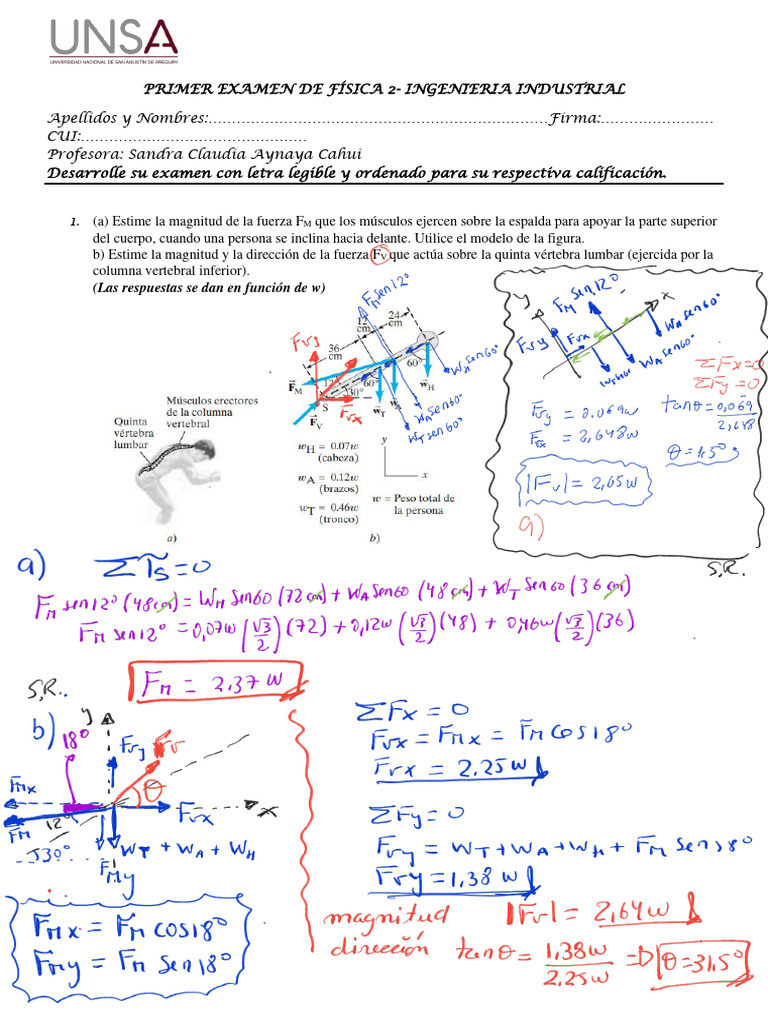 UNSA
UNIVERSIDAD NACIONAL DE SAN AGUSTÍN DE AREQUIPA
PRIMER EXAMEN DE FÍSICA 2- INGENIERIA INDUSTRIAL
Apellidos y Nombres:……………………………………………………Firma:…………………
CUI:…………………………………
Profesora: Sandra Claudia Aynaya Cahui
Desarrolle su examen con letra legible y ordenado para su respectiva calificación.
1. (a) Estime la magnitud de la fuerza FM que los músculos ejercen sobre la espalda para apoyar la parte superior
del cuerpo, cuando una persona se inclina hacia delante. Utilice el modelo de la figura.
b) Estime la magnitud y la dirección de la fuerza FV que actúa sobre la quinta vértebra lumbar (ejercida por la
columna vertebral inferior).
(Las respuestas se dan en función de w)
Músculos erectores
de la columna
vertebral
Quinta
vértebra
lumbar
a)
FM sen12°
24
cm
12
cm
36
cm
Fvy
12°
30°
60°
60°
FM
S
FV
Fvx
wT
wA
wH
WH sen60°
WA sen60°
WT sen60°
wH = 0.07w
(cabeza)
wA = 0.12w
(brazos)
wT = 0.46w
(tronco)
y
x
w = Peso total de
la persona
b)
y
FM sen12°
x
Fvy
Fvx
WA sen60°
WA sen60°
ΣFx=0
ΣFy=0
Fvy = 0.069w
Fvx = 2,648w
tanθ = 0,069
2,648
θ = 1,5°
|Fv| = 2,65w
a)
S.R.
a) ΣTs = 0
FM sen12° (48cm) = WH sen60 (72cm) + WA sen60 (48cm) + WT sen60 (36cm)
FM sen12° = 0,07w (√3/2)(72) + 0,12w (√3/2)(48) + 0,46w (√3/2)(36)
FM = 2,37 w
S.R.
b)
y
18°
Fvy
Fv
FMx
θ
Fvx
x
FM
12°
30°
WT + WA + WH
FMy
FMx = FM cos18°
FMy = FM sen18°
ΣFx = 0
Fvx = FMx = FM cos18°
Fvx = 2,25w
ΣFy = 0
Fvy = WT + WA + WH + FM sen18°
Fvy = 1,38w
magnitud |Fv| = 2,64w
dirección tanθ = 1,38w/2,25w => θ = 31,5°